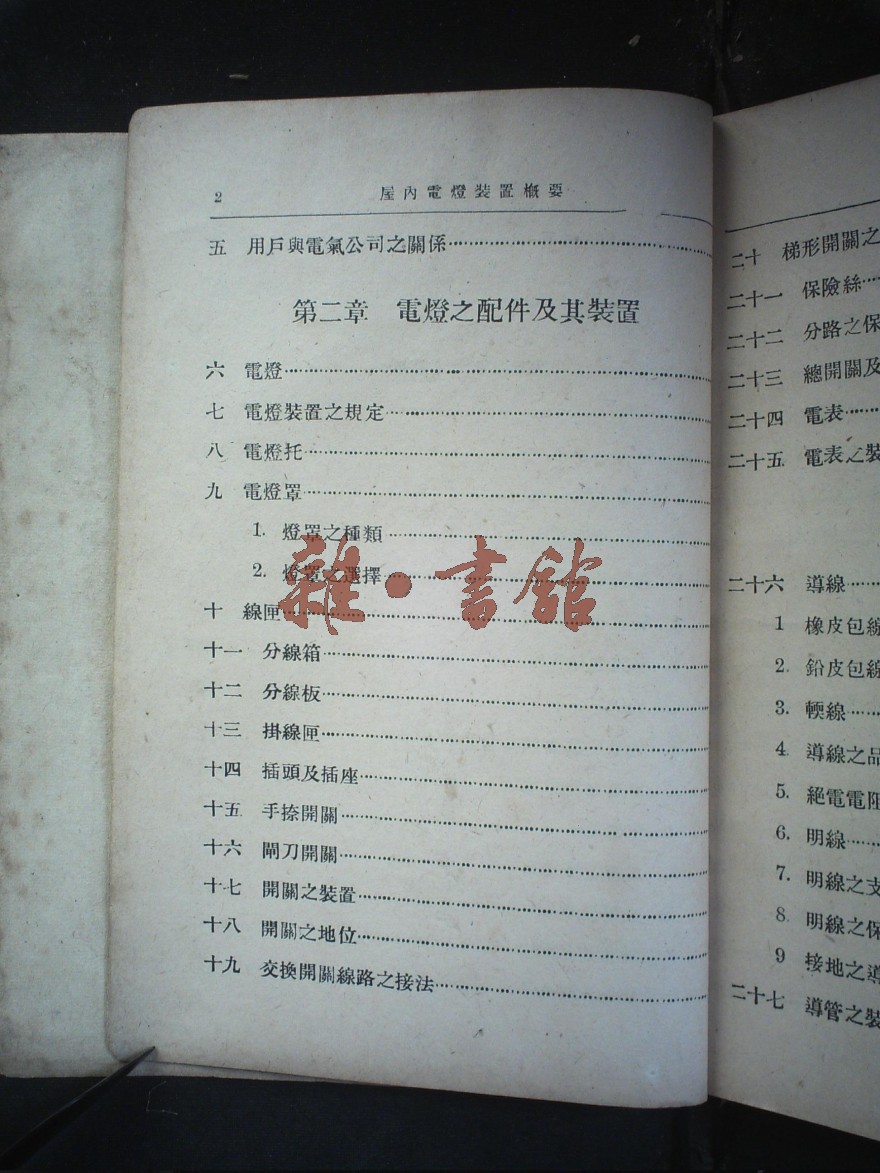 2 屋內電燈裝置概要
五 用戶與電氣公司之關係
第二章 電燈之配件及其裝置
六 電燈
七 電燈裝置之規定
八 電燈托
九 電燈罩
1. 燈罩之種類
2. 燈罩之選擇
十 線匣
十一 分線箱
十二 分線板
十三 掛線匣
十四 插頭及插座
十五 手捺開關
十六 閘刀開關
十七 開關之裝置
十八 開關之地位
十九 交換開關線路之接法
雜·書館
二十 梯形開關之
二十一 保險絲
二十二 分路之保
二十三 總開關及
二十四 電表
二十五 電表之裝
二十六 導線
1 橡皮包線
2. 鉛皮包線
3. 輭線
4. 導線之品
5. 絕電電阻
6. 明線
7. 明線之支
8. 明線之保
9 接地之導
二十七 導管之裝